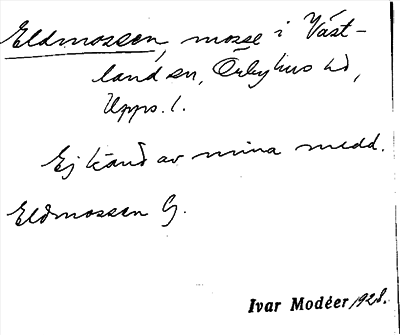 Eldmossen, mosse i Väst-
land sn, Örbyhus hd,
Upps. l.
Ej känd av mina medd.
Eldmossen G.
Ivar Modéer 1928.